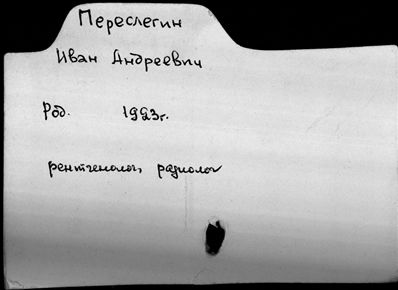 Переслегин
Иван Андреевич
Род. 1923г.
рентгенолог, радиолог